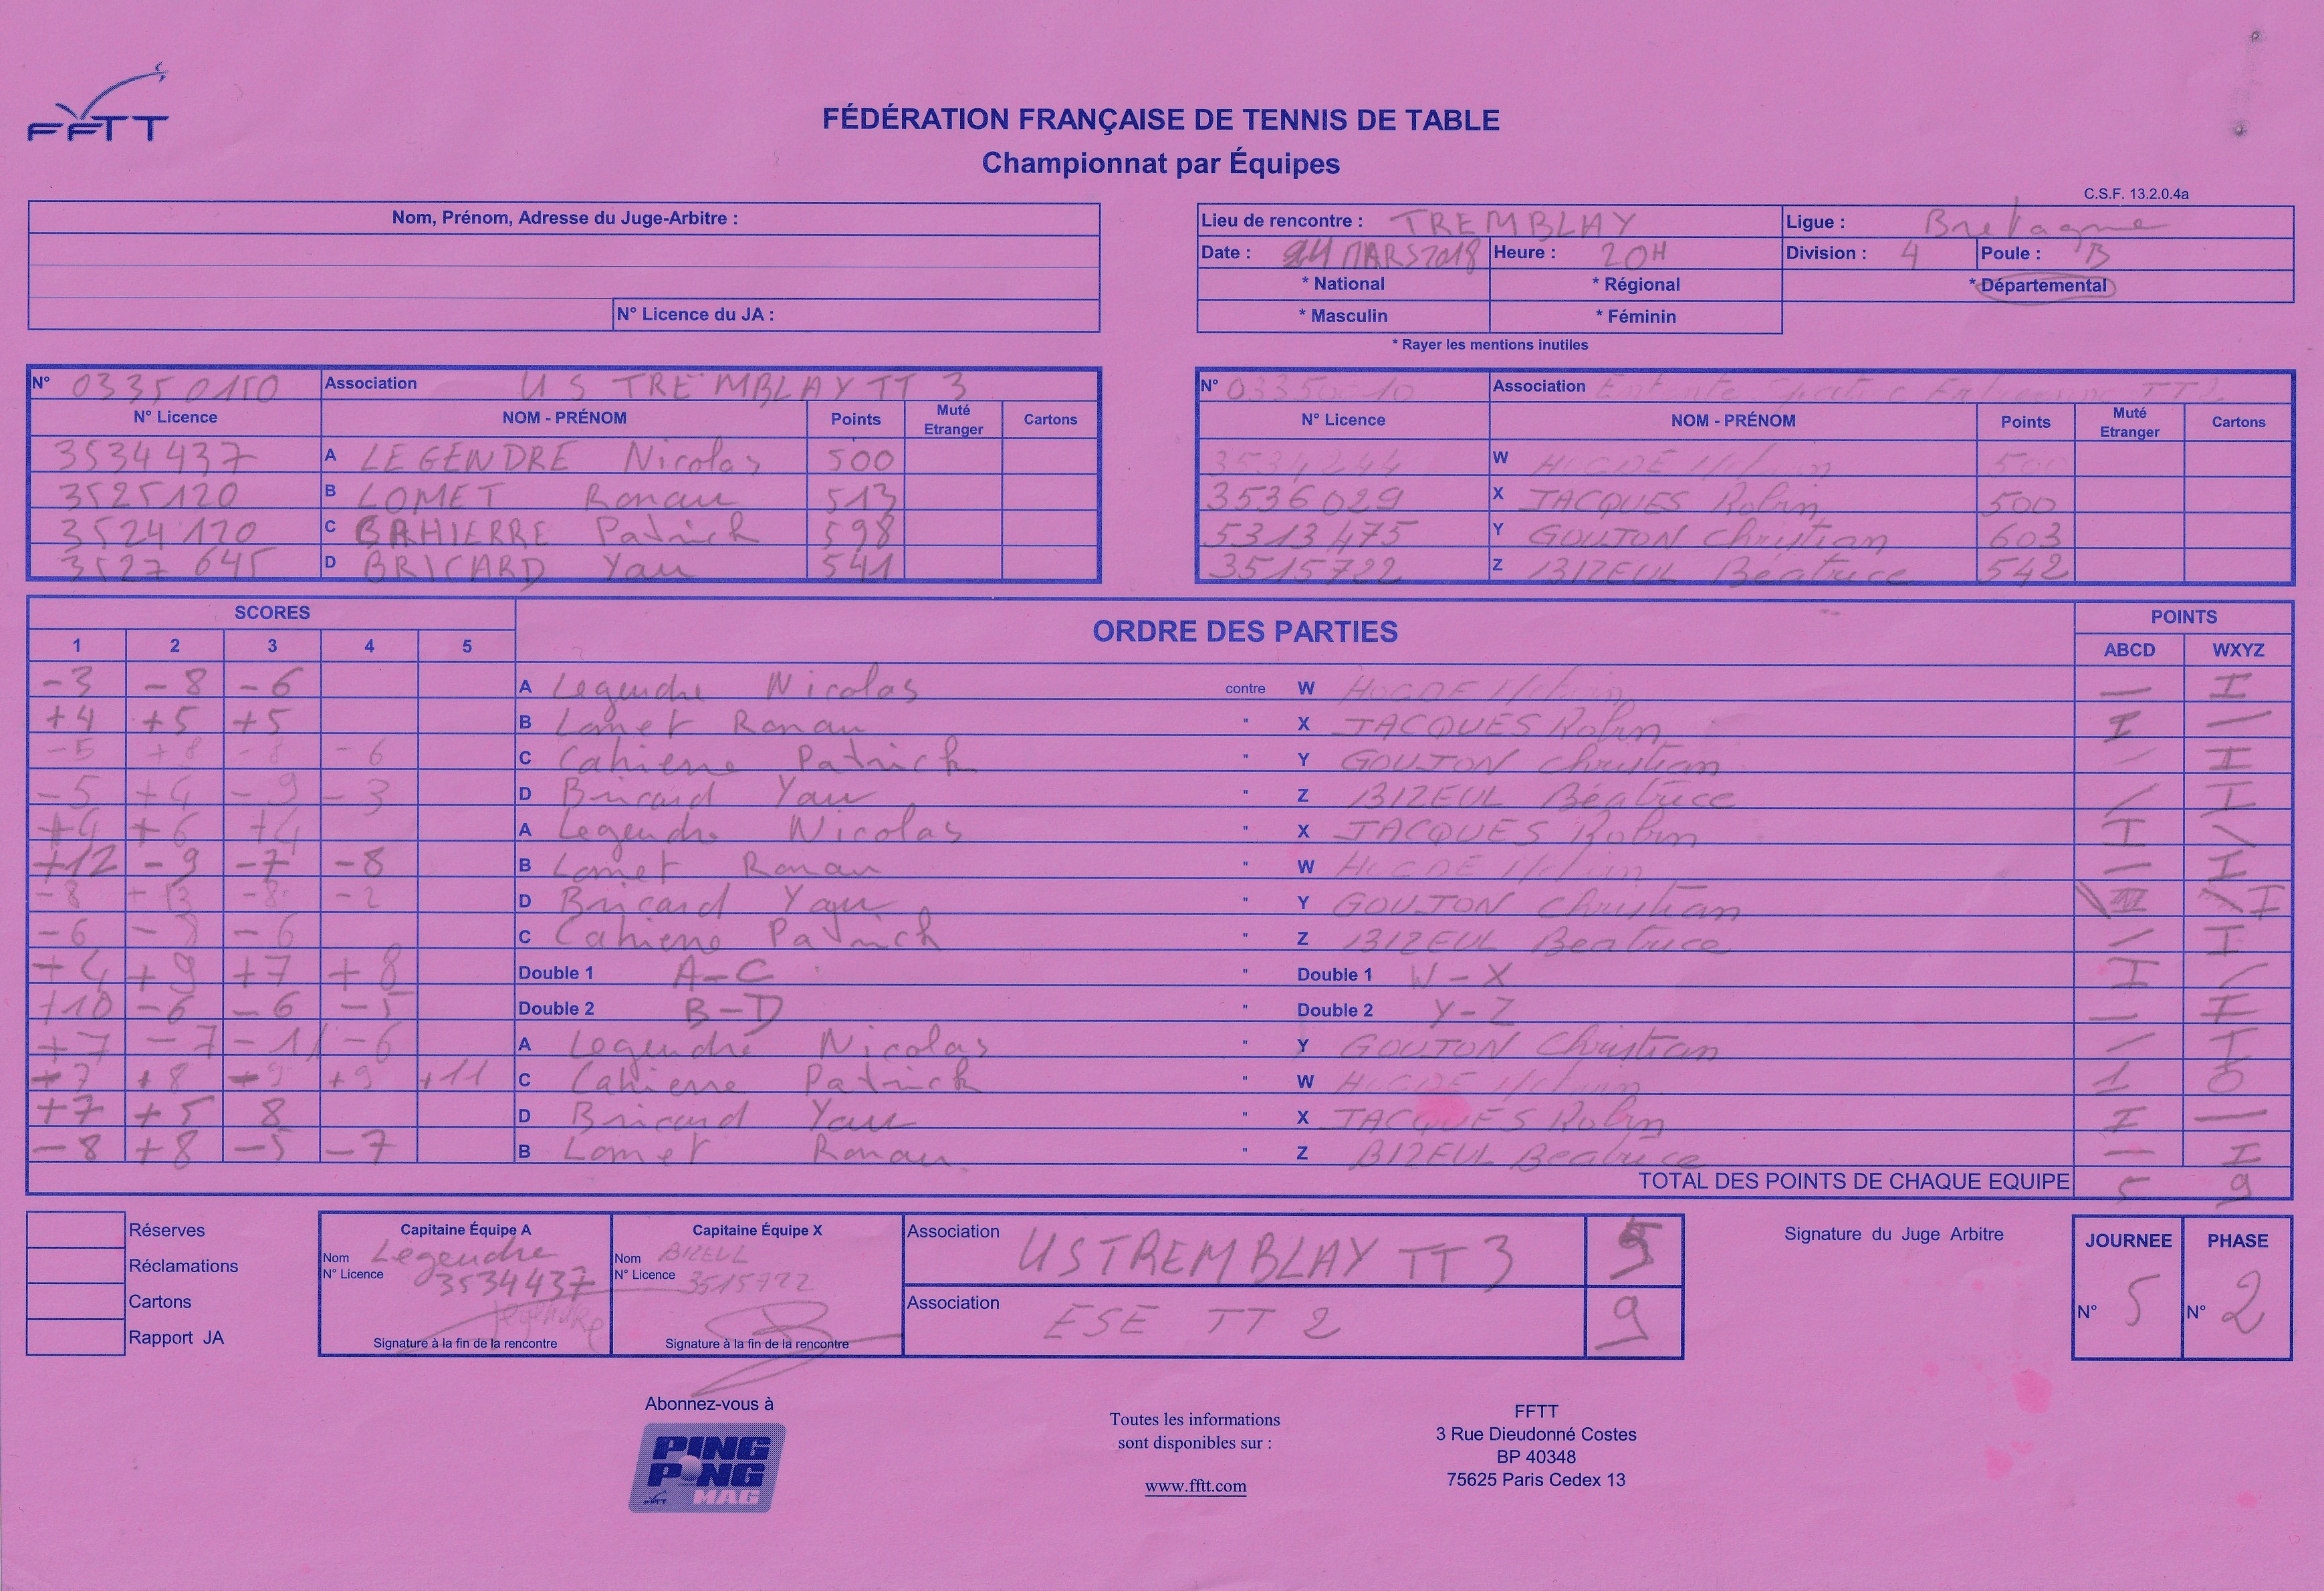 FFTT
FÉDÉRATION FRANÇAISE DE TENNIS DE TABLE
Championnat par Équipes
C.S.F. 13.2.0.4a
Nom, Prénom, Adresse du Juge-Arbitre :
N° Licence du JA :
Lieu de rencontre : TREMBLAY Ligue : Bretagne
Date : MARS 2018 Heure : 20H Division : 4 Poule : B
* National * Régional * Départemental
* Masculin * Féminin
* Rayer les mentions inutiles
N° 03350150 Association U S TREMBLAY TT 3
N° Licence NOM - PRÉNOM Points Muté Etranger Cartons
3534437 A LEGENDRE Nicolas 500
3525120 B LOMET Ronan 513
3524120 C CAHIERRE Patrick 598
3527645 D BRICARD Yan 541
N° Association TT 2
N° Licence NOM - PRÉNOM Points Muté Etranger Cartons
3534244 W 500
3536029 X JACQUES Robin 500
5313475 Y GOUJON Christian 603
3515722 Z BIZEUL Béatrice 542
SCORES ORDRE DES PARTIES POINTS
1 2 3 4 5 ABCD WXYZ
-3 -8 -6 A Legendre Nicolas contre W — I
+4 +5 +5 B Lomet Ronan " X JACQUES Robin I —
-5 +8 -8 -6 C Cahierre Patrick " Y GOUJON Christian — I
-5 +4 -9 -3 D Bricard Yan " Z BIZEUL Béatrice / I
+4 +6 +4 A Legendre Nicolas " X JACQUES Robin I \
+12 -9 -7 -8 B Lomet Ronan " W — I
-8 +13 -8 -2 D Bricard Yan " Y GOUJON Christian I
-6 -6 C Cahierre Patrick " Z BIZEUL Beatrice / I
+4 +9 +7 +8 Double 1 A-C " Double 1 W-X I /
+10 -6 -6 -5 Double 2 B-D " Double 2 Y-Z — I
+7 -7 -11 -6 A Legendre Nicolas " Y GOUJON Christian / I
+8 +9 +11 C Cahierre Patrick " W 1 0
+7 +5 8 D Bricard Yan " X JACQUES Robin I —
-8 +8 -5 -7 B Lomet Ronan " Z BIZEUL Beatrice — I
TOTAL DES POINTS DE CHAQUE EQUIPE 5 9
Réserves
Réclamations
Cartons
Rapport JA
Capitaine Équipe A
Nom Legendre
N° Licence 3534437
Signature à la fin de la rencontre
Capitaine Équipe X
Nom BIZEUL
N° Licence 3515722
Signature à la fin de la rencontre
Association US TREMBLAY TT 3 5
Association ESE TT 2 9
Signature du Juge Arbitre
JOURNEE PHASE
N° 5 N° 2
Abonnez-vous à
PING
PONG
MAG
Toutes les informations
sont disponibles sur :
www.fftt.com
FFTT
3 Rue Dieudonné Costes
BP 40348
75625 Paris Cedex 13